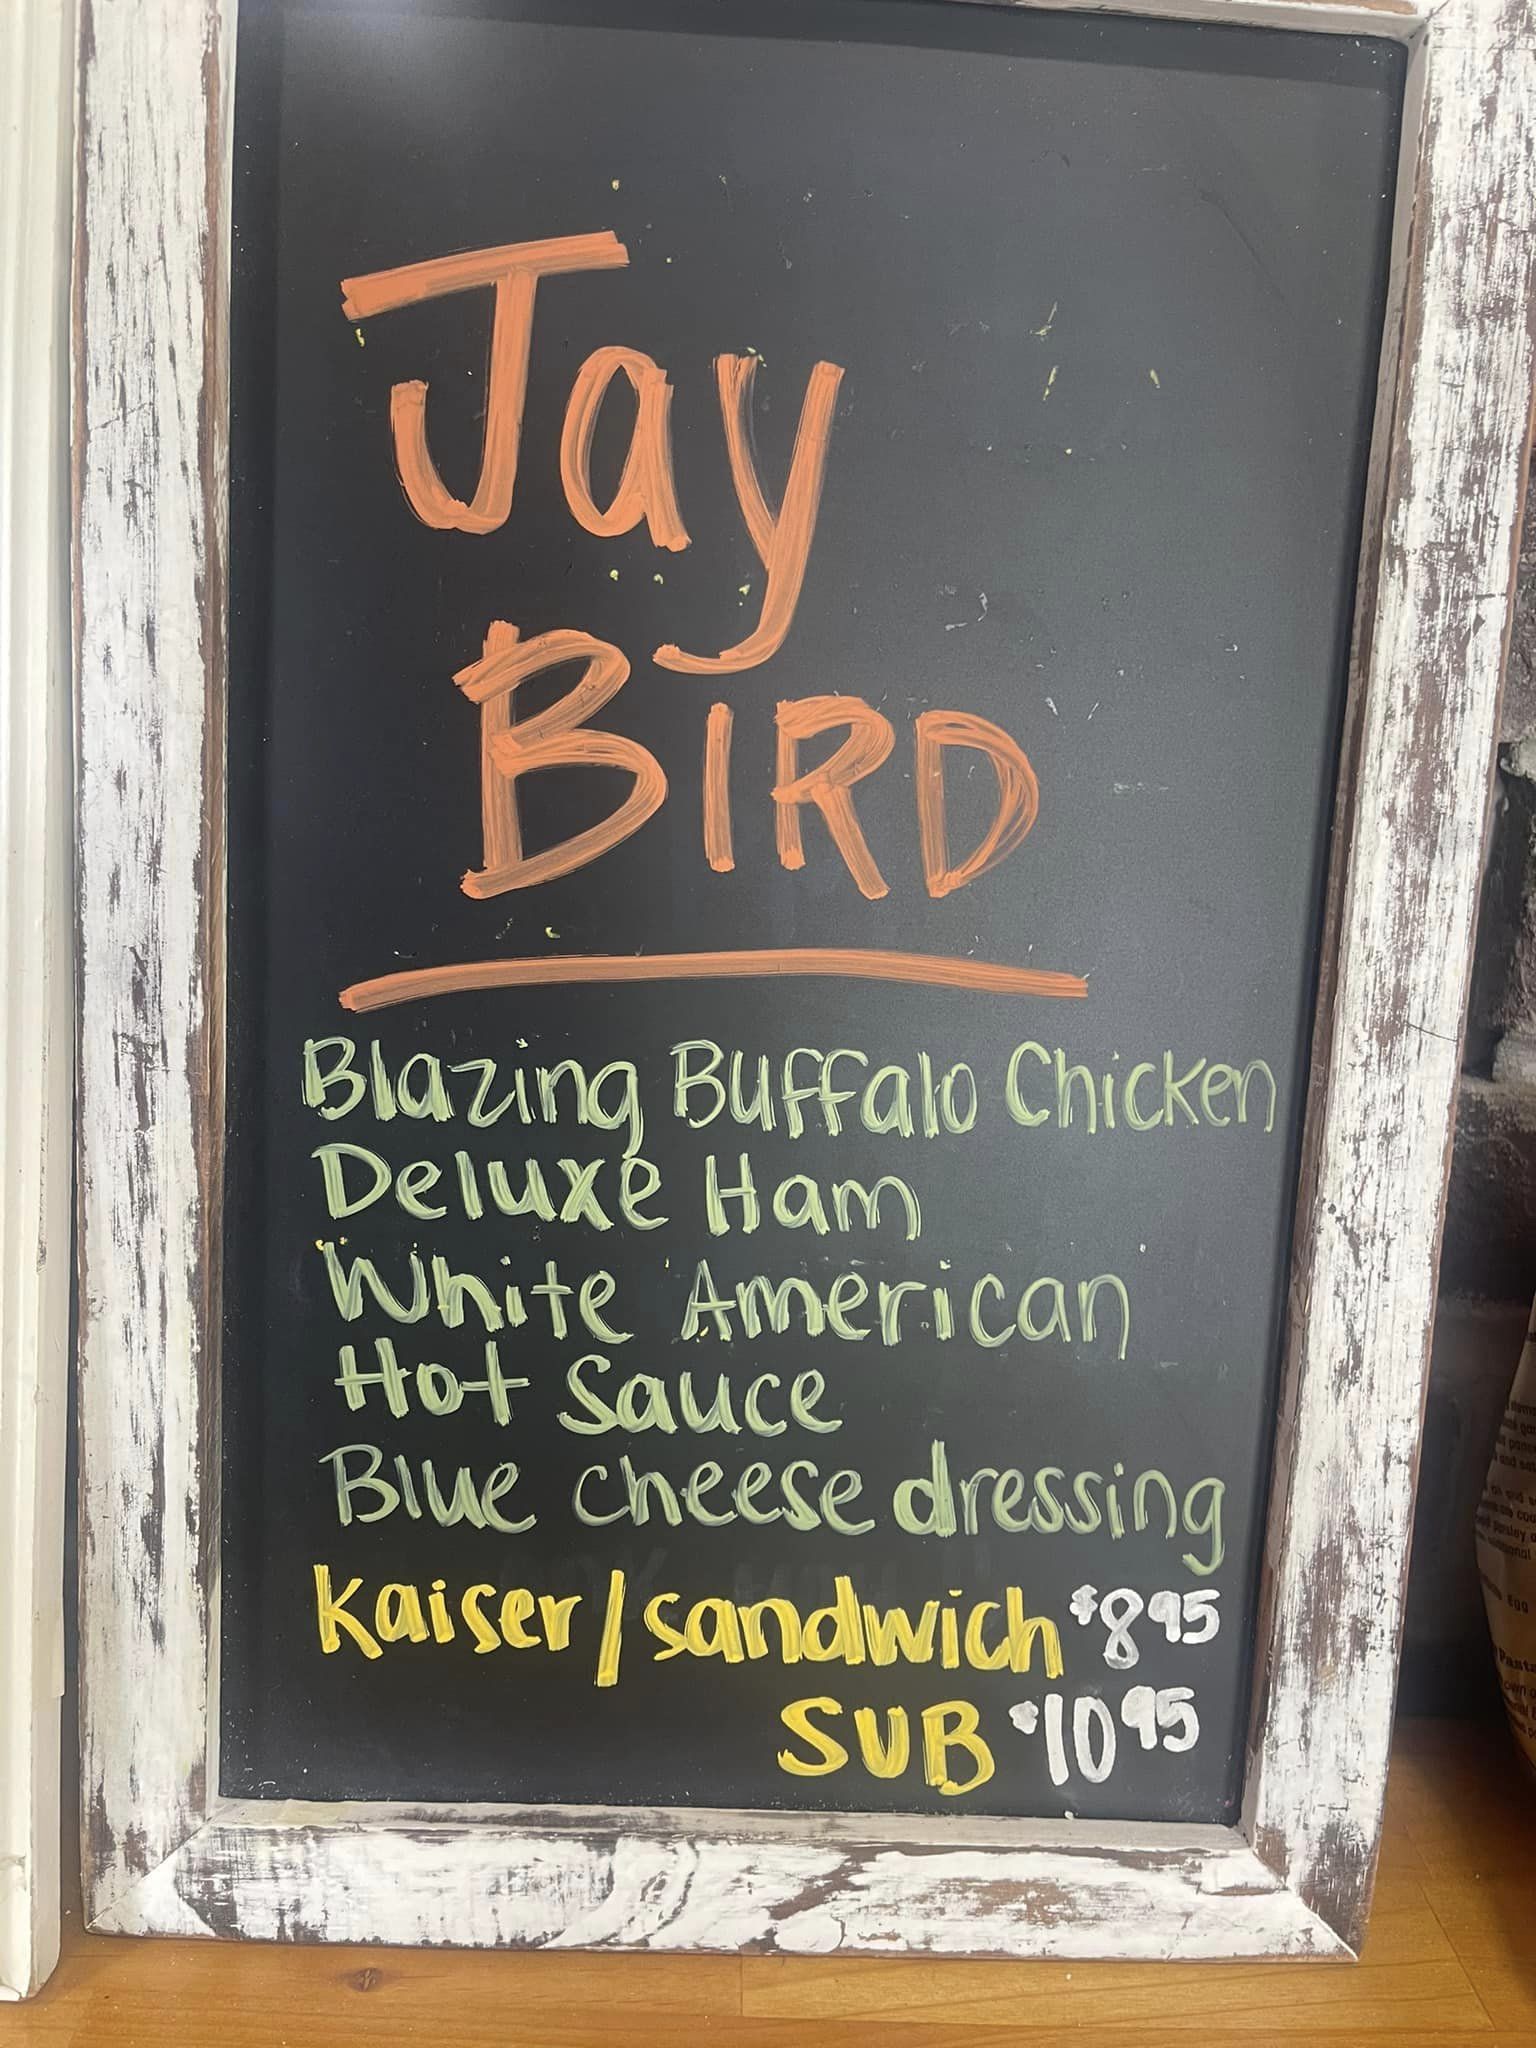 Jay
BIRD
Blazing Buffalo Chicken
Deluxe Ham
White American
Hot Sauce
Blue cheese dressing
Kaiser/sandwich $8.95
SUB $10.95